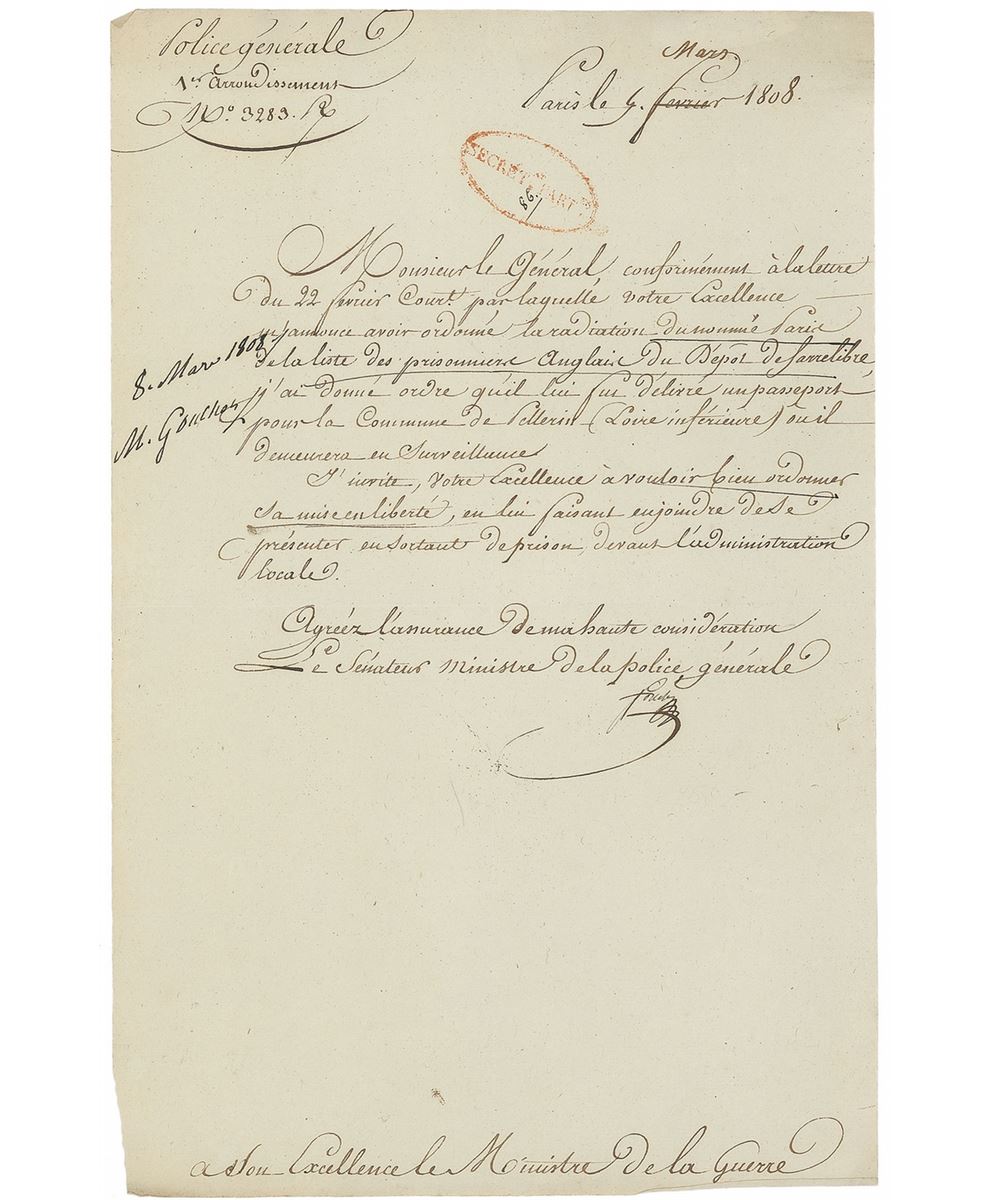 Police générale
1er Arrondissement
N° 3283. R
Mars
Paris le 4. fevrier 1808.
SECRET PART
86.
Monsieur le Général, conformément à la lettre
du 22 fevrier Court. par laquelle votre Excellence
m'annonce avoir ordonné la radiation du nommé Paris
de la liste des prisonniers Anglais du Dépôt de Sarrelibre,
j'ai donné ordre qu'il lui fut délivré un passeport
pour la Commune de Pellerin (Loire inférieure) ou il
demeurera en Surveillance
8. Mars 1808
M. Gouchon
J'invite, Votre Excellence à vouloir bien ordonner
sa mise en liberté, en lui faisant enjoindre de se
présenter, en sortant de prison, devant l'administration
locale.
Agréez l'assurance de ma haute considération
Le Sénateur Ministre de la police générale
Fouché
a Son Excellence le Ministre de la Guerre